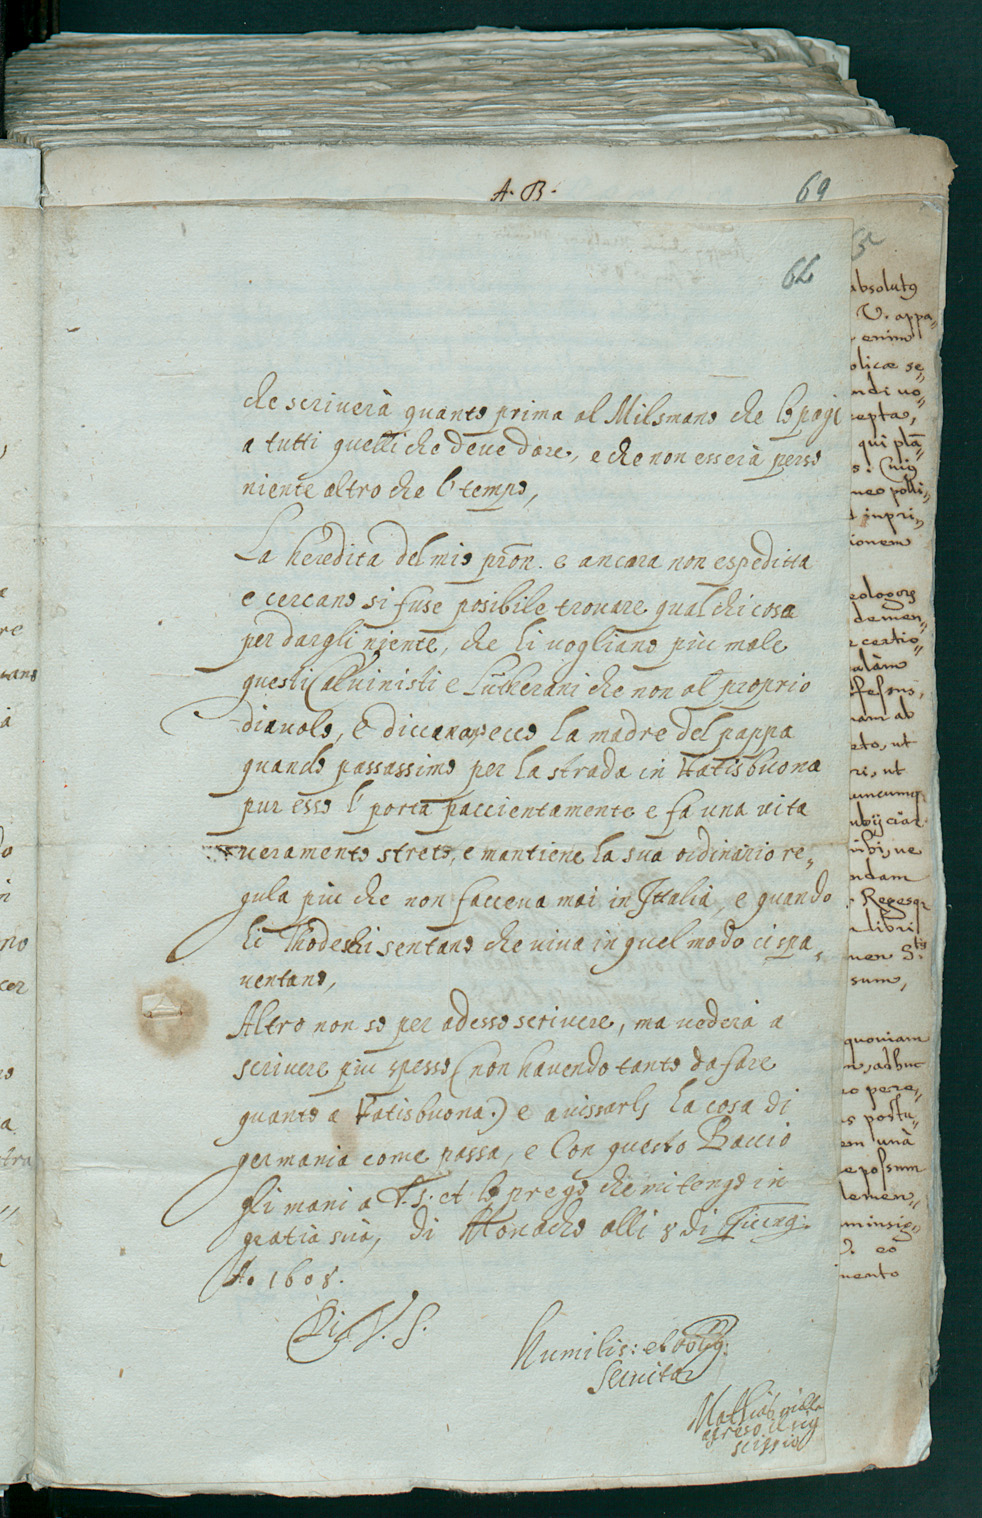 A. B.
69
66
che scriuerà quanto prima al Milsmano che lo pagi
a tutti quelli che deue dare, e che non esserà perso
niente altro che l tempo,
La heredita del mio pron. e ancora non espeditta
e cercano si fuse posibile trouare qual chi cosa
per dargli niente, che li uogliano più male
questi Caluinisti e Lutherani che non al proprio
diauolo, e diccano ecco la madre del pappa
quando passassimo per la strada in Ratisbuona
pur esso l porta paccientamente e fa una uita
ueramente streto, e mantiene la sua ordinario re„
gula piu che non facceua mai in Ittalia, e quando
li Thodeschi sentano che uiua in quel modo ci spa„
uentano,
Altro non so per adesso scriuere, ma uoderà a
scriuere piu spesso (non hauendo tanto da fare
quanto a Ratisbuona.) e auissarli la cosa di
germania come passa, e Con questo Baccio
gli mani a V. S. et lo prego che mi tengo in
gratia suà, di Monacho alli 8 di
A. 1608.
Di V. S.
humilis: et
Seruitor
absolutg
V. appa„
enim
olicæ se„
ndi uo„
cepta,
qui plã„
neo polli„
inpri„
ionem
eologors
demen„
certio„
alàm
ffessus,
nam ab
eto, ut
ri, ut
uncumq
ubijciar
nibi, ue
ndam
Regesq
libri
men S.tis
sum,
quoniam
n, adhuc
no pere„
s postu„
em unà
e possum
lemen„
minsig„
V. eo
mento